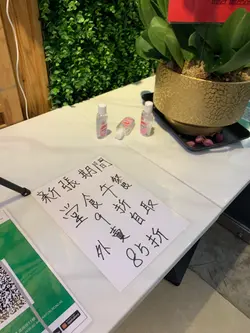 新張期間
堂食午餐
9折
外賣自取
85折